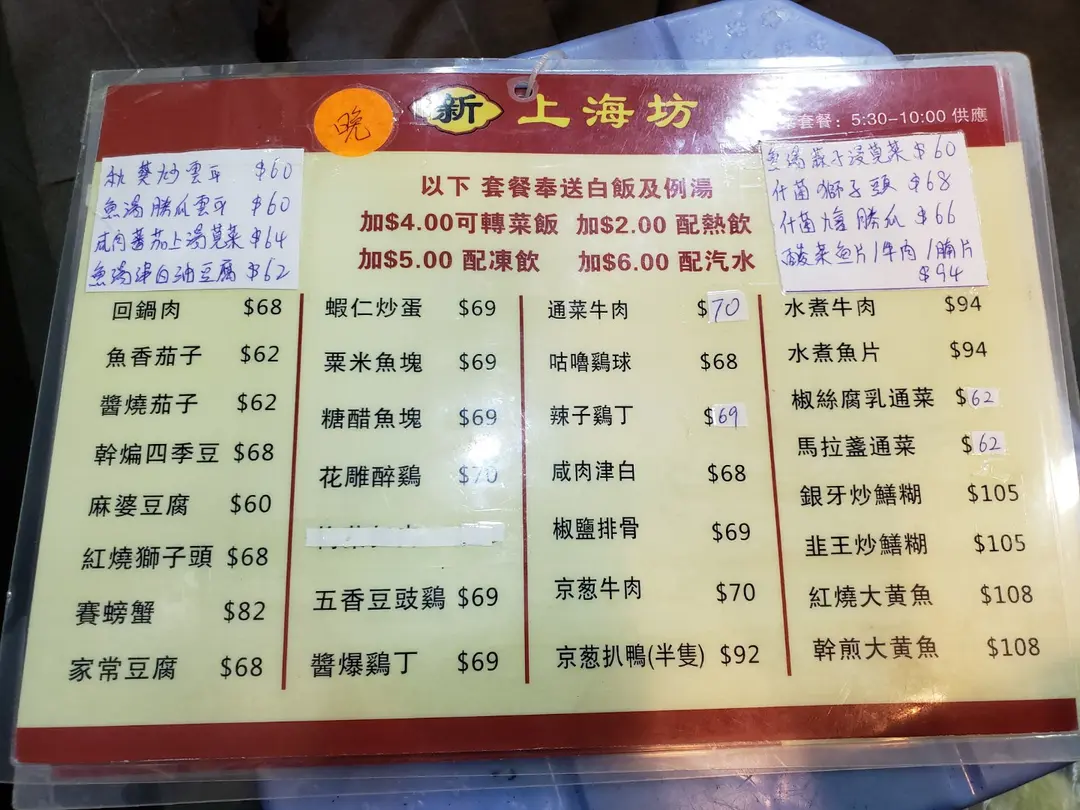 晚
新 上海坊
套餐：5:30-10:00 供應
秋葵炒雲耳 $60
魚湯勝瓜雲耳 $60
咸肉蕃茄上湯莧菜 $64
魚湯蛋白油豆腐 $62
以下 套餐奉送白飯及例湯
加$4.00可轉菜飯 加$2.00 配熱飲
加$5.00 配凍飲 加$6.00 配汽水
魚湯 子浸莧菜 $60
什菌獅子頭 $68
什菌 勝瓜 $66
酸菜魚片/牛肉/腩片
$94
回鍋肉 $68
魚香茄子 $62
醬燒茄子 $62
幹煸四季豆 $68
麻婆豆腐 $60
紅燒獅子頭 $68
賽螃蟹 $82
家常豆腐 $68
蝦仁炒蛋 $69
粟米魚塊 $69
糖醋魚塊 $69
花雕醉鷄 $70
五香豆豉鷄 $69
醬爆鷄丁 $69
通菜牛肉 $70
咕嚕鷄球 $68
辣子鷄丁 $69
咸肉津白 $68
椒鹽排骨 $69
京葱牛肉 $70
京葱扒鴨(半隻) $92
水煮牛肉 $94
水煮魚片 $94
椒絲腐乳通菜 $62
馬拉盞通菜 $62
銀牙炒鱔糊 $105
韭王炒鱔糊 $105
紅燒大黄魚 $108
幹煎大黄魚 $108